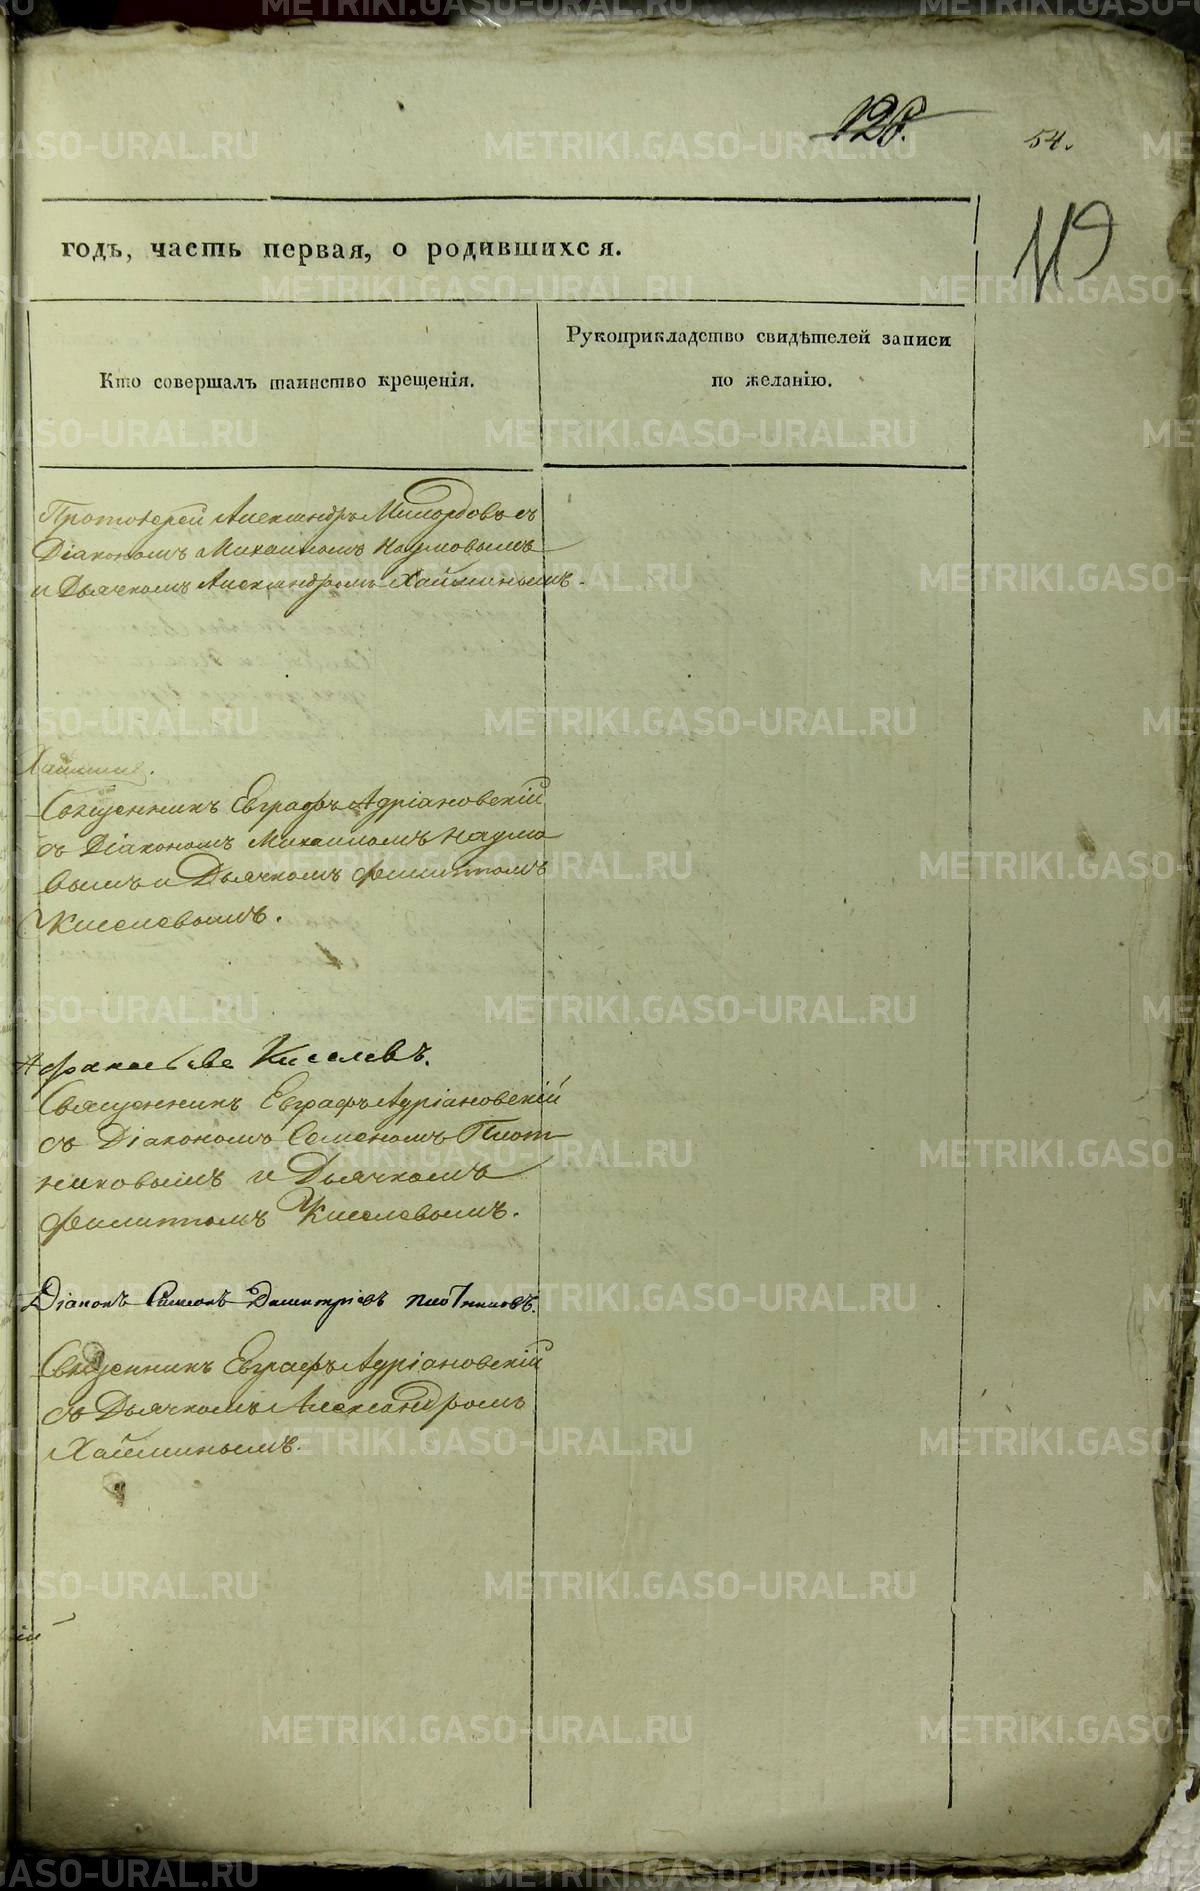 128.
54.
119
годъ, часть первая, о родившихся.
Кто совершалъ таинство крещенія.
Рукоприкладство свидѣтелей записи
по желанію.
Протоіерей Александръ Милордовъ съ
Діакономъ Михаиломъ Наумовымъ
и Дьячкомъ Александромъ Хайминымъ.
Хайминъ.
Священникъ Евграфъ Адріановскій
съ Діакономъ Михаиломъ Наумо
вымъ и Дьячкомъ Филиппомъ
Киселевымъ.
Афанасьевъ Киселевъ.
Священникъ Евграфъ Адріановскій
съ Діакономъ Семеномъ Плот
никовымъ и Дьячкомъ
Филиппомъ Киселевымъ.
Діаконъ Симеонъ Димитріевъ Плотниковъ.
Священникъ Евграфъ Адріановскій
съ Дьячкомъ Александромъ
Хайминымъ.
METRIKI.GASO-URAL.RU